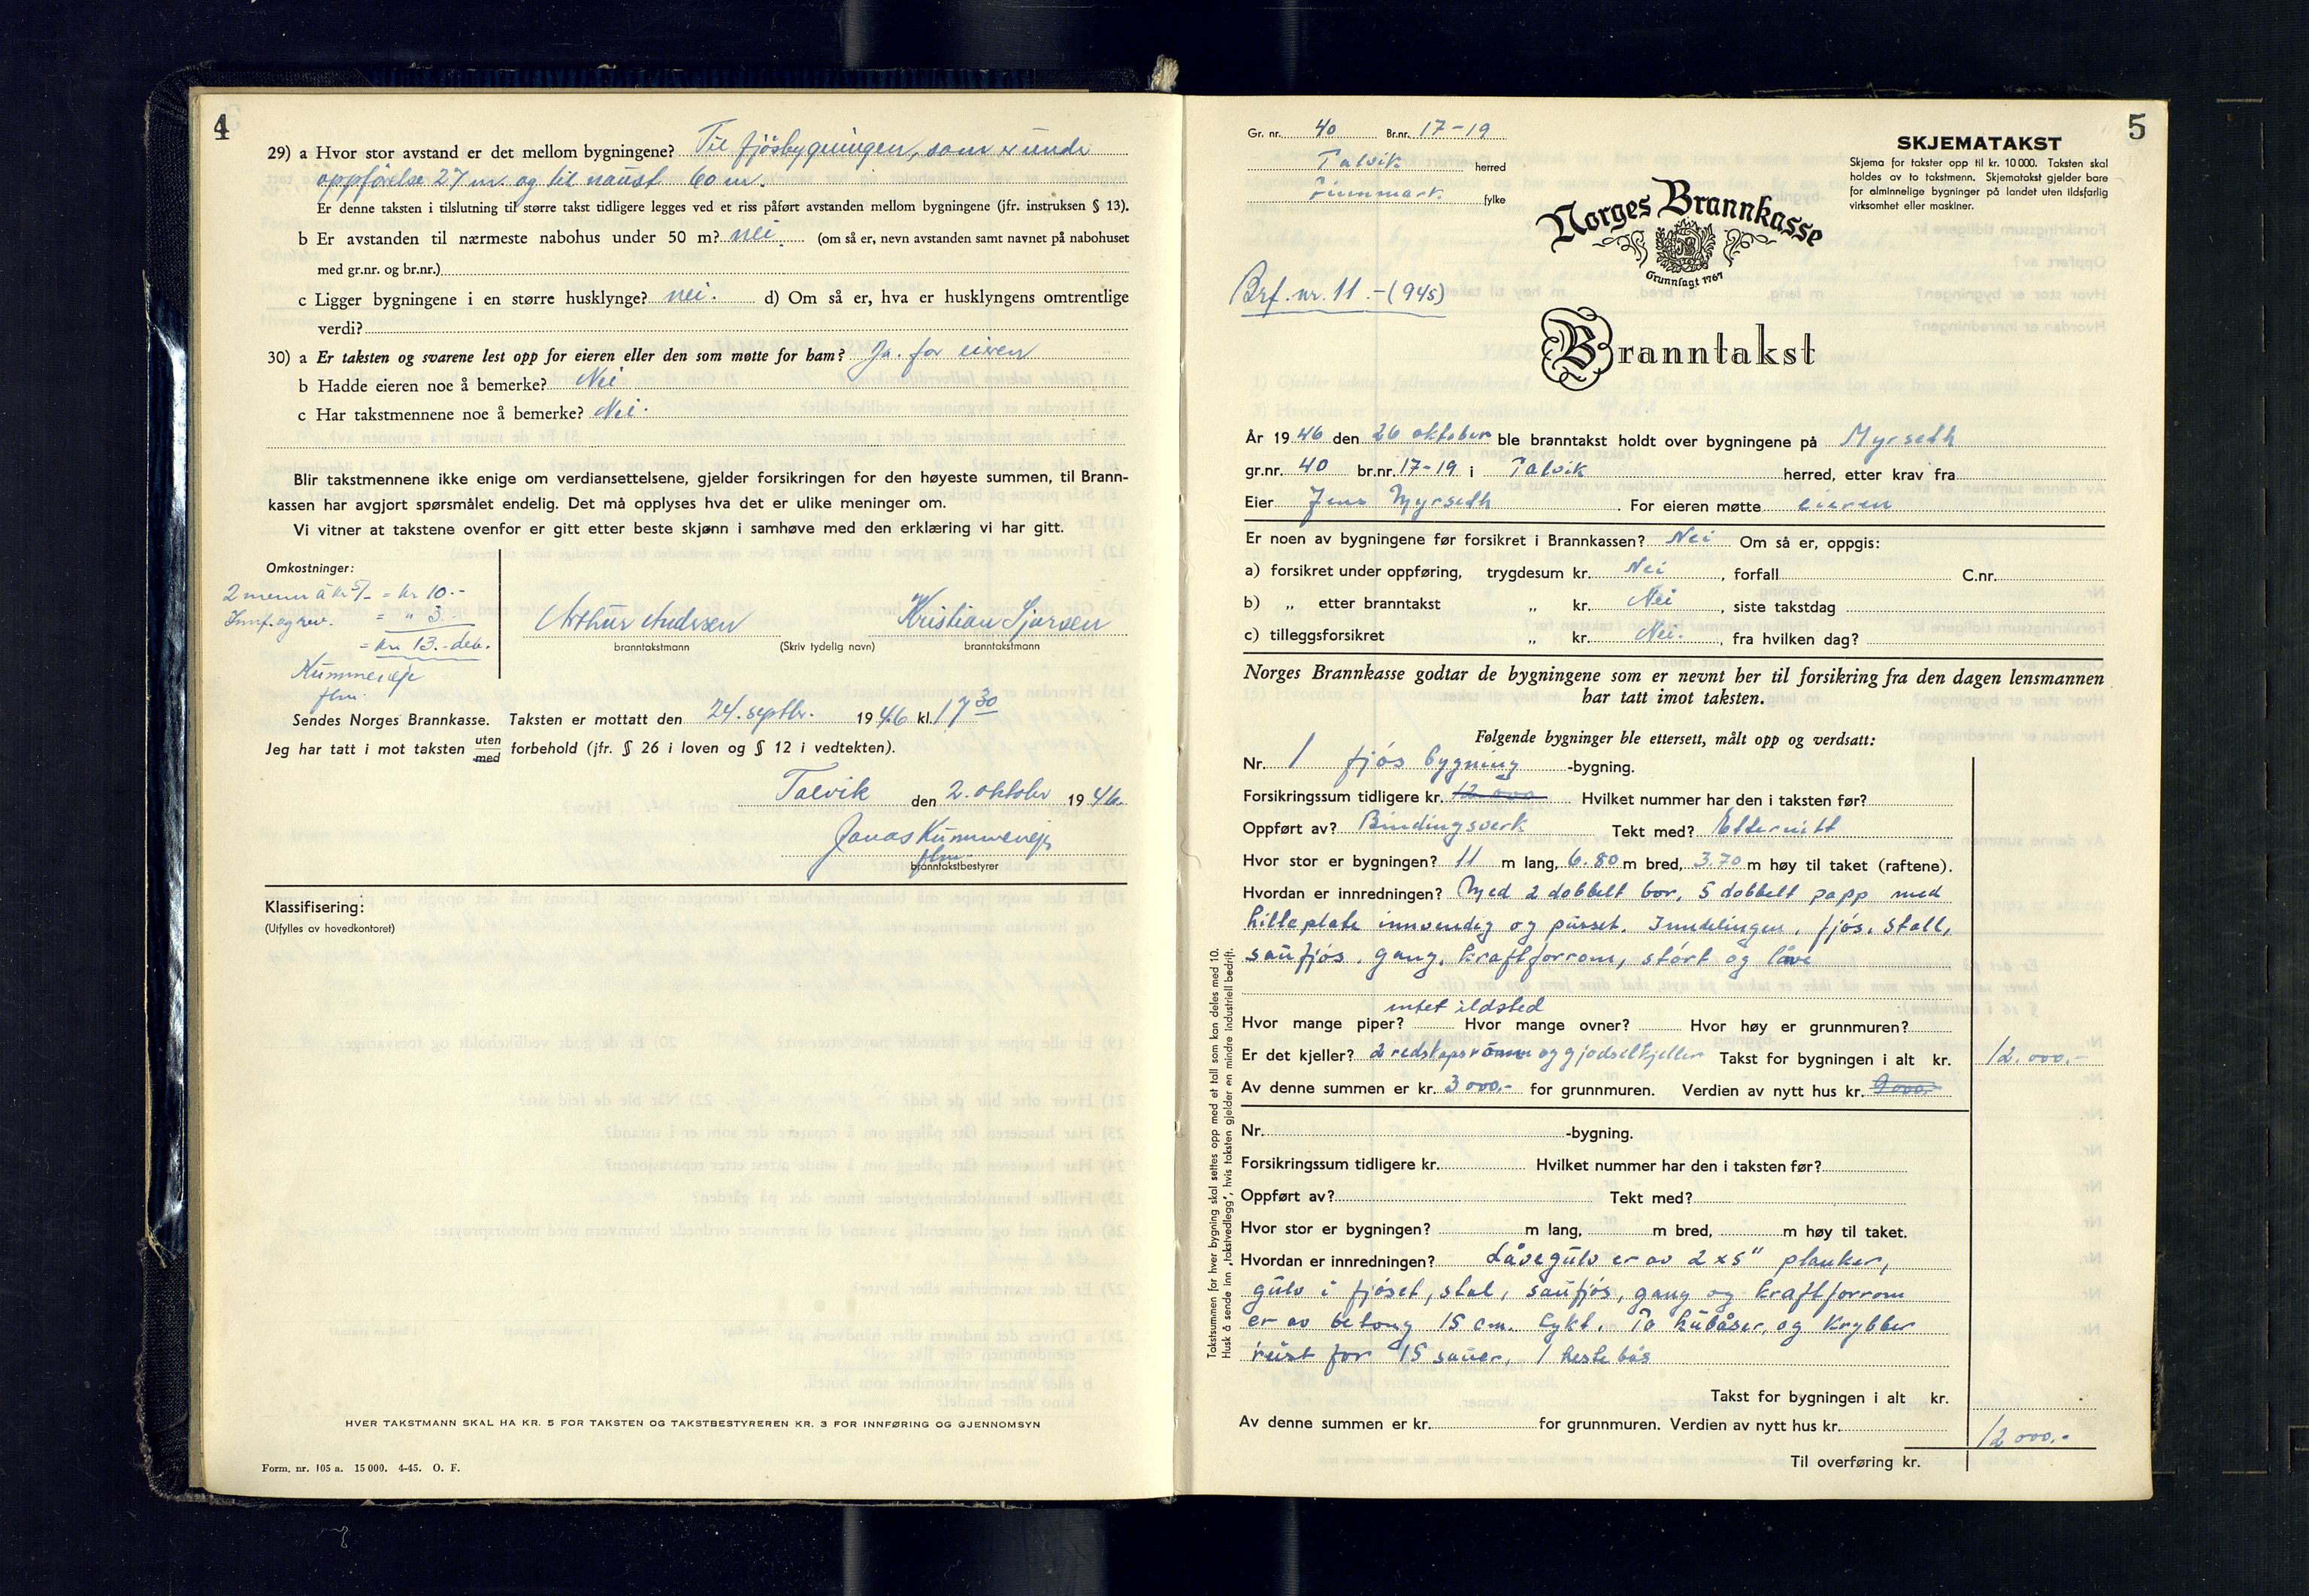 4
29) a Hvor stor avstand er det mellom bygningene? Til fjösbygningen, som er under
oppförelse 27 m. og til naust 60 m.
Er denne taksten i tilslutning til større takst tidligere legges ved et riss påført avstanden mellom bygningene (jfr. instruksen § 13).
b Er avstanden til nærmeste nabohus under 50 m? nei. (om så er, nevn avstanden samt navnet på nabohuset
med gr.nr. og br.nr.)
c Ligger bygningene i en større husklynge? nei. d) Om så er, hva er husklyngens omtrentlige
verdi?
30) a Er taksten og svarene lest opp for eieren eller den som møtte for ham? Ja. for eieren
b Hadde eieren noe å bemerke? Nei
c Har takstmennene noe å bemerke? Nei.
Blir takstmennene ikke enige om verdiansettelsene, gjelder forsikringen for den høyeste summen, til Brann-
kassen har avgjort spørsmålet endelig. Det må opplyses hva det er ulike meninger om.
Vi vitner at takstene ovenfor er gitt etter beste skjønn i samhøve med den erklæring vi har gitt.
Omkostninger:
2 menn á kr 5/- = kr 10.-
Innf. og rev. = " 3.-
= kr 13.- dek.
Kummeneje
flm.
Arthur Andersen Kristian Sjursen
branntakstmann (Skriv tydelig navn) branntakstmann
Sendes Norges Brannkasse. Taksten er mottatt den 24. septbr. 1946 kl. 17 30
Jeg har tatt i mot taksten uten med forbehold (jfr. § 26 i loven og § 12 i vedtekten).
Talvik den 2. oktober 1946.
Jonas Kummeneje
flm.
branntakstbestyrer
Klassifisering:
(Utfylles av hovedkontoret)
HVER TAKSTMANN SKAL HA KR. 5 FOR TAKSTEN OG TAKSTBESTYREREN KR. 3 FOR INNFØRING OG GJENNOMSYN
Form. nr. 105 a. 15 000. 4-45. O. F.
5
Gr. nr. 40 Br.nr. 17-19
Talvik herred
Finnmark. fylke
SKJEMATAKST
Skjema for takster opp til kr. 10 000. Taksten skal
holdes av to takstmenn. Skjematakst gjelder bare
for alminnelige bygninger på landet uten ildsfarlig
virksomhet eller maskiner.
Norges Brannkasse
Grunnlagt 1767
Brf. nr. 11.-(945)
Branntakst
År 1946 den 26 oktober ble branntakst holdt over bygningene på Myrseth
gr.nr. 40 br.nr. 17-19 i Talvik herred, etter krav fra
Eier Jens Myrseth. For eieren møtte eieren
Er noen av bygningene før forsikret i Brannkassen? Nei Om så er, oppgis:
a) forsikret under oppføring, trygdesum kr. Nei, forfall C.nr.
b) „ etter branntakst „ kr. Nei, siste takstdag
c) tilleggsforsikret „ kr. Nei., fra hvilken dag?
Norges Brannkasse godtar de bygningene som er nevnt her til forsikring fra den dagen lensmannen
har tatt imot taksten.
Følgende bygninger ble ettersett, målt opp og verdsatt:
Nr. 1 fjós bygning -bygning.
Forsikringssum tidligere kr. 12 000 Hvilket nummer har den i taksten før?
Oppført av? Bindingsverk Tekt med? Etternitt
Hvor stor er bygningen? 11 m lang, 6.80 m bred, 3.70 m høy til taket (raftene).
Hvordan er innredningen? Med 2 dobbelt bor, 5 dobbelt papp med
hilleplate innvendig og pusset. Inndelingen, fjós, stall,
saufjós, gang, kraftforrom, stórt og låve
intet ildsted
Hvor mange piper? Hvor mange ovner? Hvor høy er grunnmuren?
Er det kjeller? 2 redskapsromm og gjødselkjeller Takst for bygningen i alt kr. 12.000.-
Av denne summen er kr. 3 000.- for grunnmuren. Verdien av nytt hus kr. 9 000.-
Nr. -bygning.
Forsikringssum tidligere kr. Hvilket nummer har den i taksten før?
Oppført av? Tekt med?
Hvor stor er bygningen? m lang, m bred, m høy til taket.
Hvordan er innredningen? Låvegulv er av 2 x 5" planker,
gulv i fjóset, stal, saufjós, gang og kraftforrom
er av betong 15 cm. tykt. To kubåser, og krybber
reist for 15 sauer, 1 hestebås
Takst for bygningen i alt kr.
Av denne summen er kr. for grunnmuren. Verdien av nytt hus kr.
12 000.-
Til overføring kr.
Takstsummen for hver bygning skal settes opp med et tall som kan deles med 10.
Husk å sende inn „takstvedlegg", hvis taksten gjelder en mindre industriell bedrift.